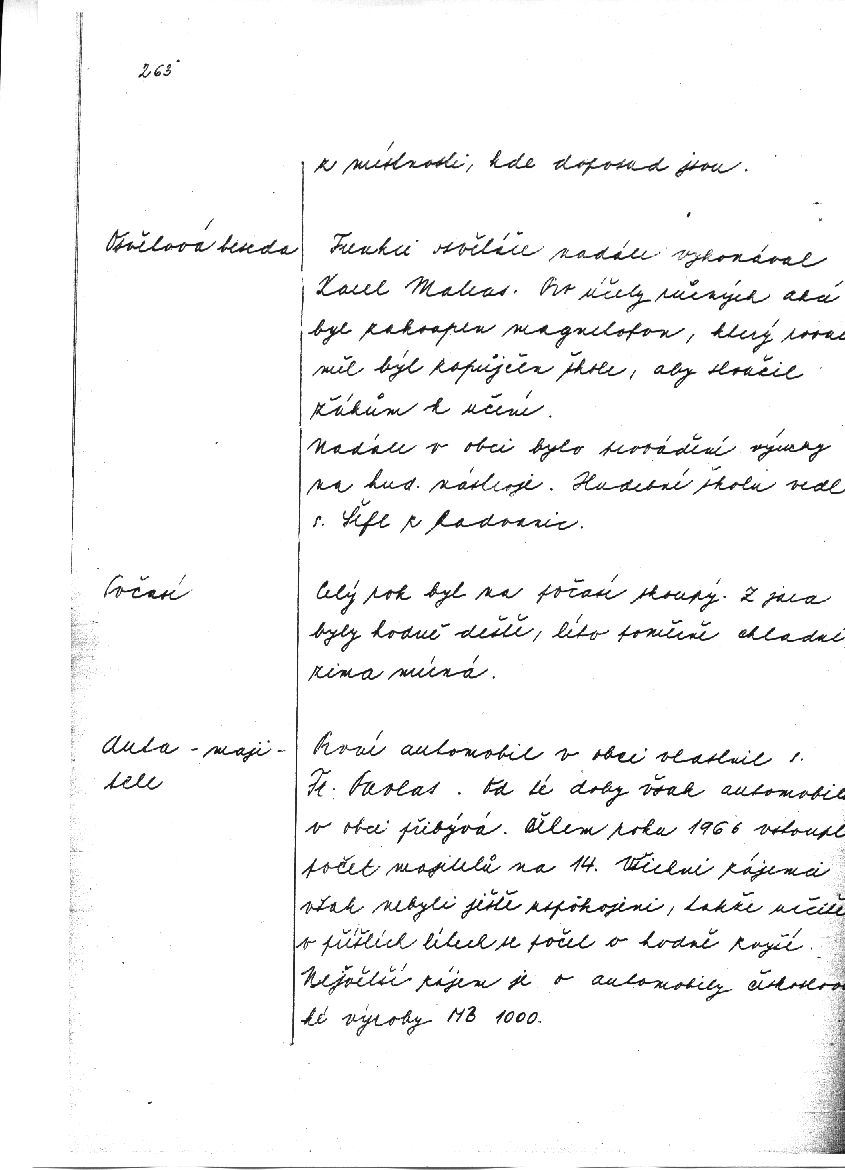 263
z místnosti, kde doposud jsou.
Osvětová beseda
Funkci osvětáře nadále vykonával
Karel Maleas. Pro účely různých akcí
byl zakoupen magnetofon, který rovně
měl být zapůjčen škole, aby sloužil
žákům k učení.
Nadále v obci bylo provádění výuky
na hud. nástroje. Hudební školu vedl
s. Šífl z Radvanic.
Počasí
Celý rok byl na počasí skoupý. Z jara
byly hodně deště, léto poměrně chladné
zima mírná.
Auta - maji-
telé
První automobil v obci vlastnil s.
Fr. Pavlas. Od té doby však automobilů
v obci přibývá. Během roku 1966 vstoupl
počet majitelů na 14. Všichni zájemci
však nebyli ještě uspokojeni, takže určitě
v příštích létech se počet o hodně zvýší.
Největší zájem je o automobily českoslov
ké výroby MB 1000.